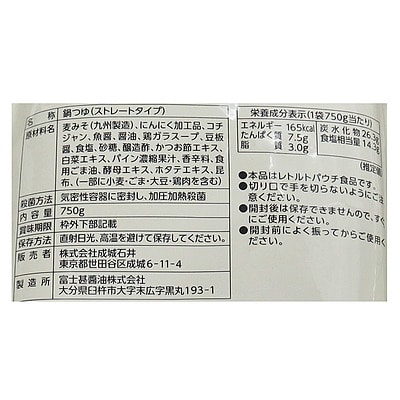 名 称 鍋つゆ(ストレートタイプ)
原材料名 麦みそ(九州製造)、にんにく加工品、コチ
ジャン、魚醤、醤油、鶏ガラスープ、豆板
醤、食塩、砂糖、醸造酢、かつお節エキス、
白菜エキス、パイン濃縮果汁、香辛料、食
用ごま油、酵母エキス、ホタテエキス、昆
布、(一部に小麦・ごま・大豆・鶏肉を含む)
殺菌方法 気密性容器に密封し、加圧加熱殺菌
内容量 750g
賞味期限 枠外下部記載
保存方法 直射日光、高温を避けて保存してください。
販売者 株式会社成城石井
東京都世田谷区成城6-11-4
製造所 富士甚醤油株式会社
大分県臼杵市大字末広字黒丸193-1
栄養成分表示(1袋750g当たり)
エネルギー 165kcal 炭水化物 26.3g
たんぱく質 7.5g 食塩相当量 14.3g
脂 質 3.0g
(推定値
●本品はレトルトパウチ食品です。
●切り口で手を切らないようにご注
意ください。
●開封後は保存できませんので、すぐ
にご使用ください。
●開封前によく振ってからご使用く
ださい。